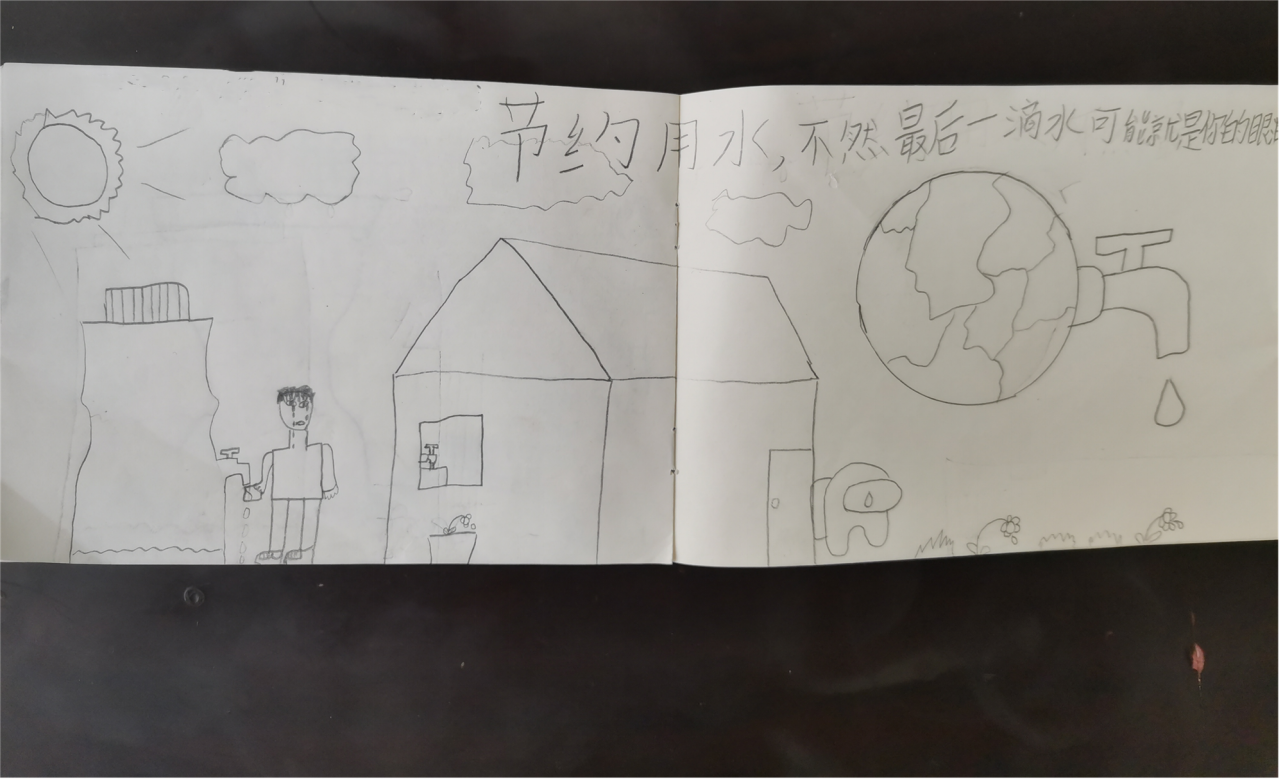 节约用水,不然最后一滴水可能就是你的眼